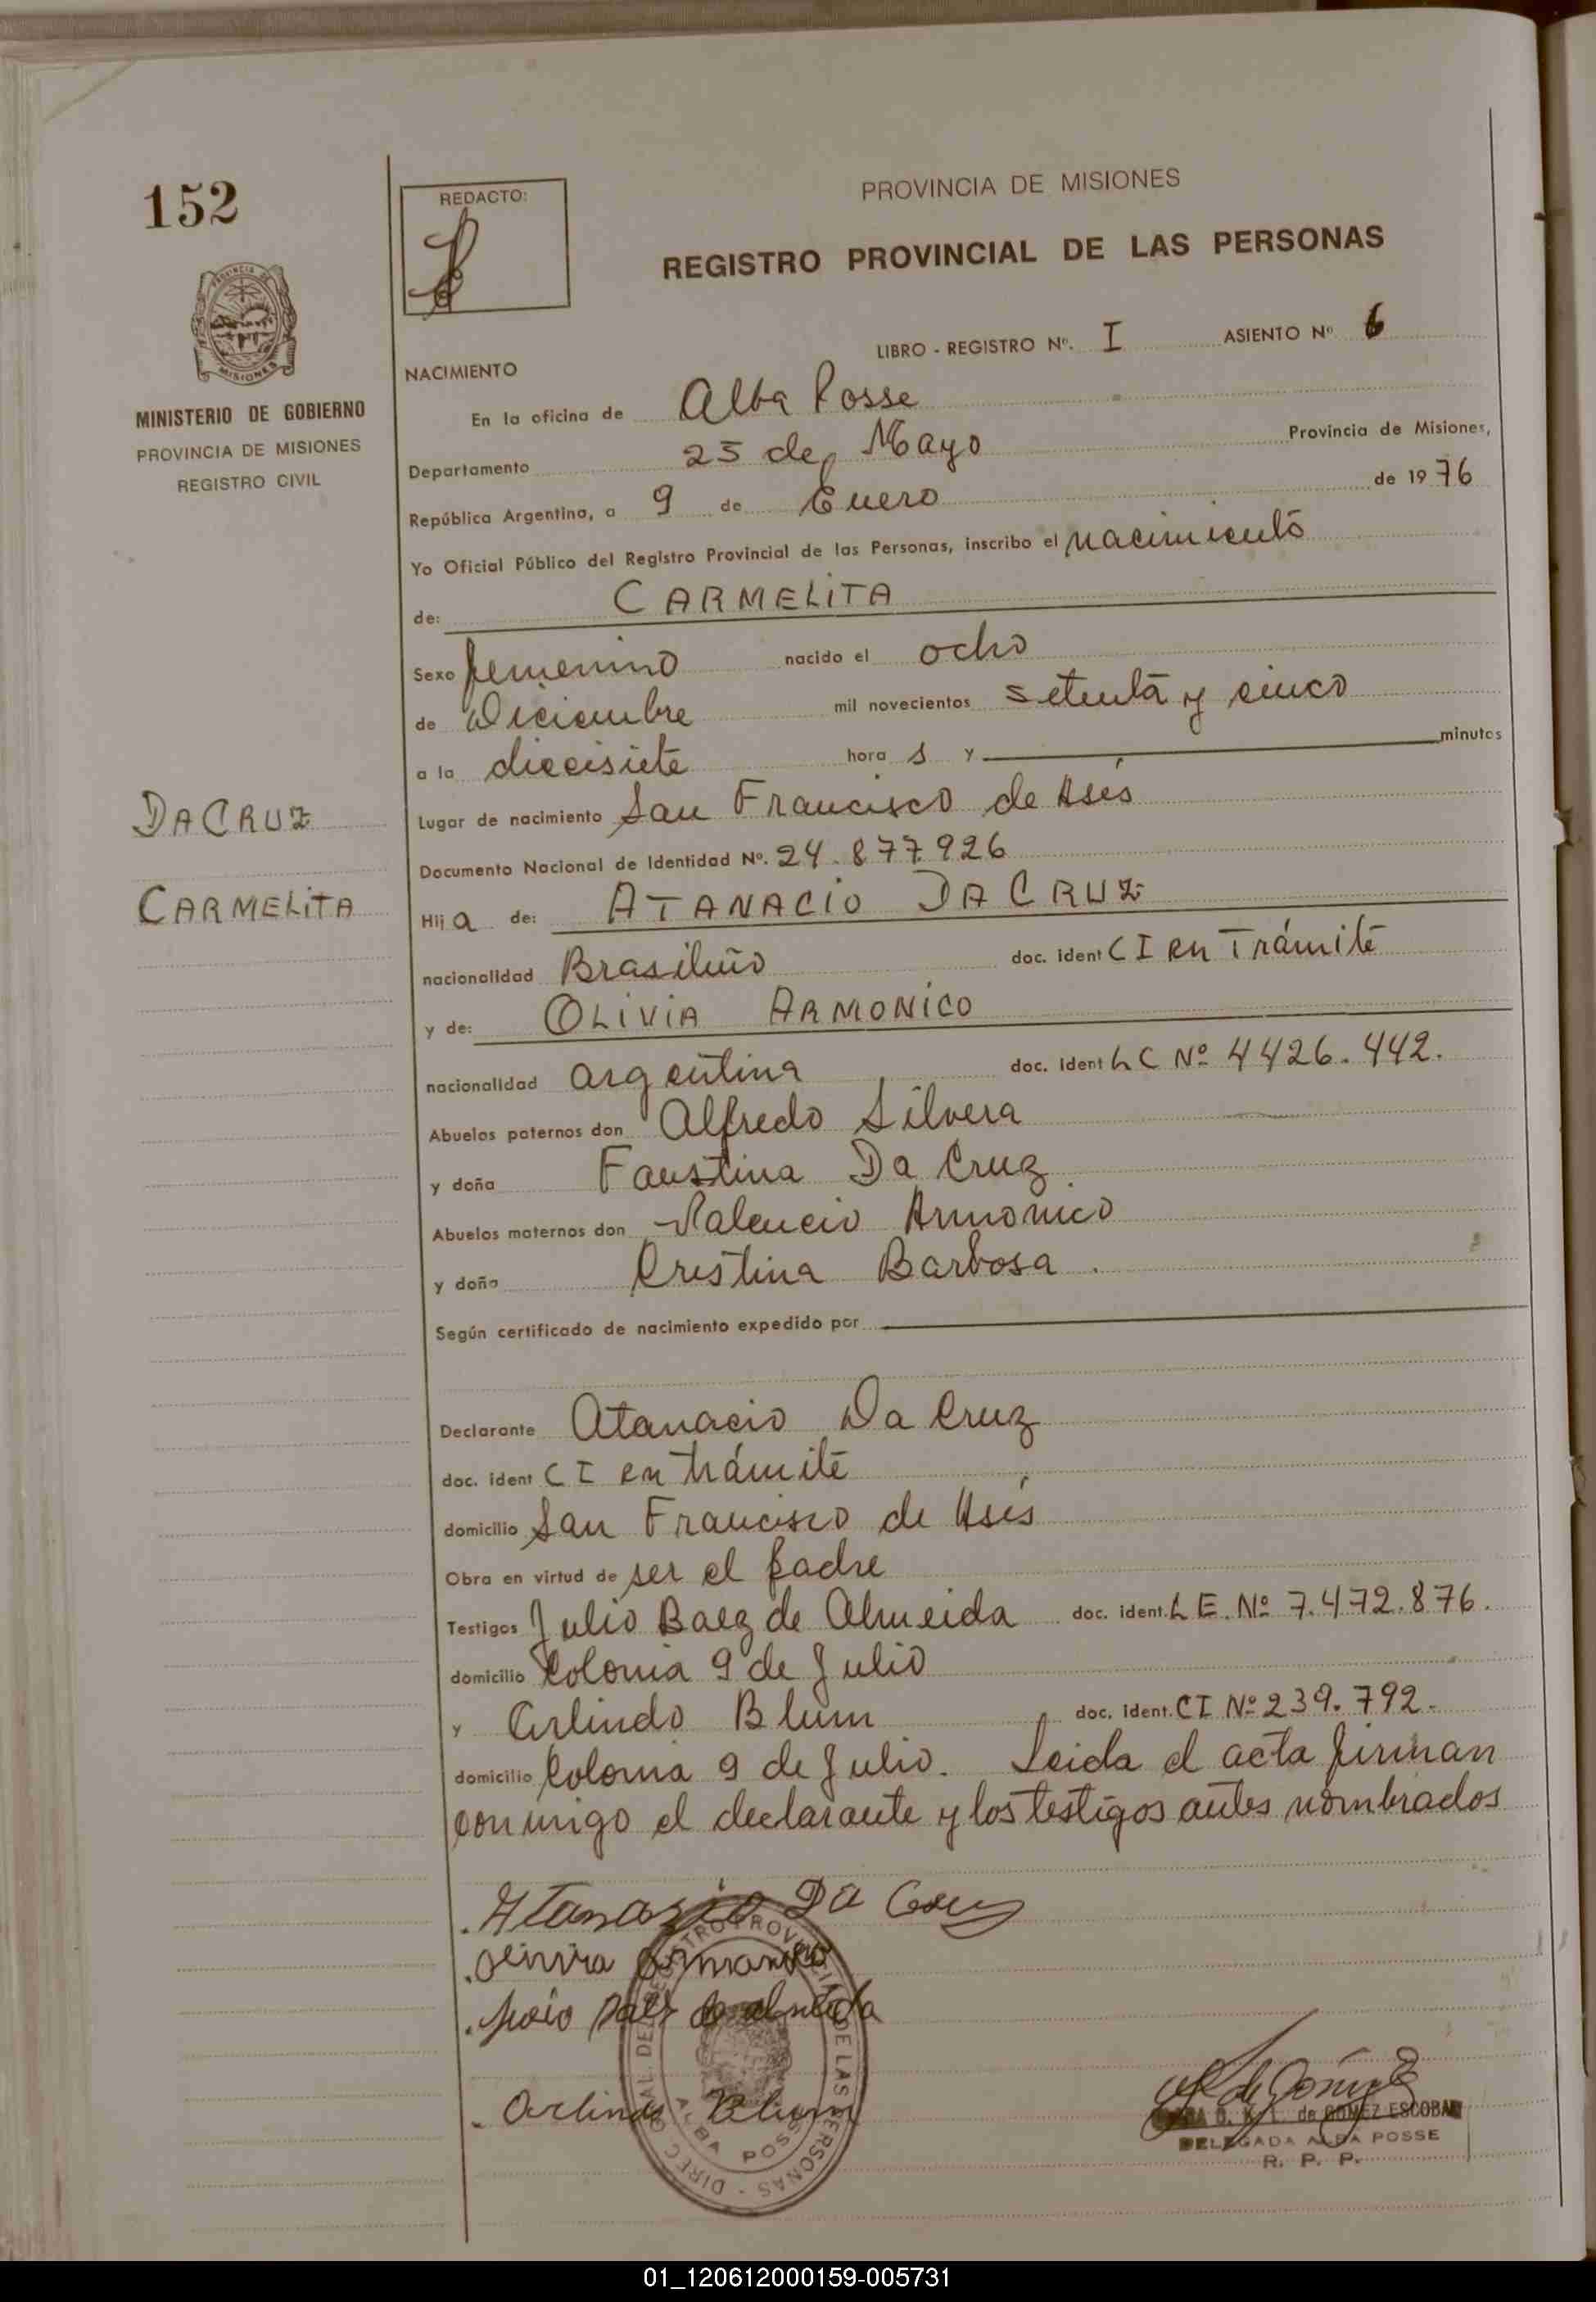 152
REDACTO:
PROVINCIA DE MISIONES
REGISTRO PROVINCIAL DE LAS PERSONAS
PROVINCIA DE MISIONES
MINISTERIO DE GOBIERNO
PROVINCIA DE MISIONES
REGISTRO CIVIL
LIBRO - REGISTRO Nº. I ASIENTO Nº 6
NACIMIENTO
En la oficina de Alba Posse
Departamento 25 de Mayo Provincia de Misiones,
República Argentina, a 9 de Enero de 1976
Yo Oficial Público del Registro Provincial de las Personas, inscribo el nacimiento
de: CARMELITA
Sexo femenino nacido el ocho
de Diciembre mil novecientos setenta y cinco
a la diecisiete hora s y minutos
Lugar de nacimiento San Francisco de Asís
Documento Nacional de Identidad Nº. 24.877.926
DA CRUZ
CARMELITA
Hija de: ATANACIO DA CRUZ
nacionalidad Brasileño doc. ident CI en Trámite
y de: OLIVIA ARMONICO
nacionalidad argentina doc. ident LC Nº 4426.442.
Abuelos paternos don Alfredo Silvera
y doña Faustina Da Cruz
Abuelos maternos don Valencio Armonico
y doña Cristina Barbosa.
Según certificado de nacimiento expedido por
Declarante Atanacio Da Cruz
doc. ident CI en trámite
domicilio San Francisco de Asís
Obra en virtud de ser el padre
Testigos Julio Baez de Almeida doc. ident. LE. Nº 7.472.876.
domicilio Colonia 9 de Julio
y Arlindo Blum doc. ident. CI Nº 239.792.
domicilio Colonia 9 de Julio. Leida el acta firman
conmigo el declarante y los testigos antes nombrados
Atanazio Da Cruz
Arlindo Blum
DIREC GRAL. DEL REGISTRO PROVINCIAL DE LAS PERSONAS
ALBA POSSE
de GOMEZ ESCOBAR
DELEGADA ALBA POSSE
R. P. P.
01_120612000159-005731